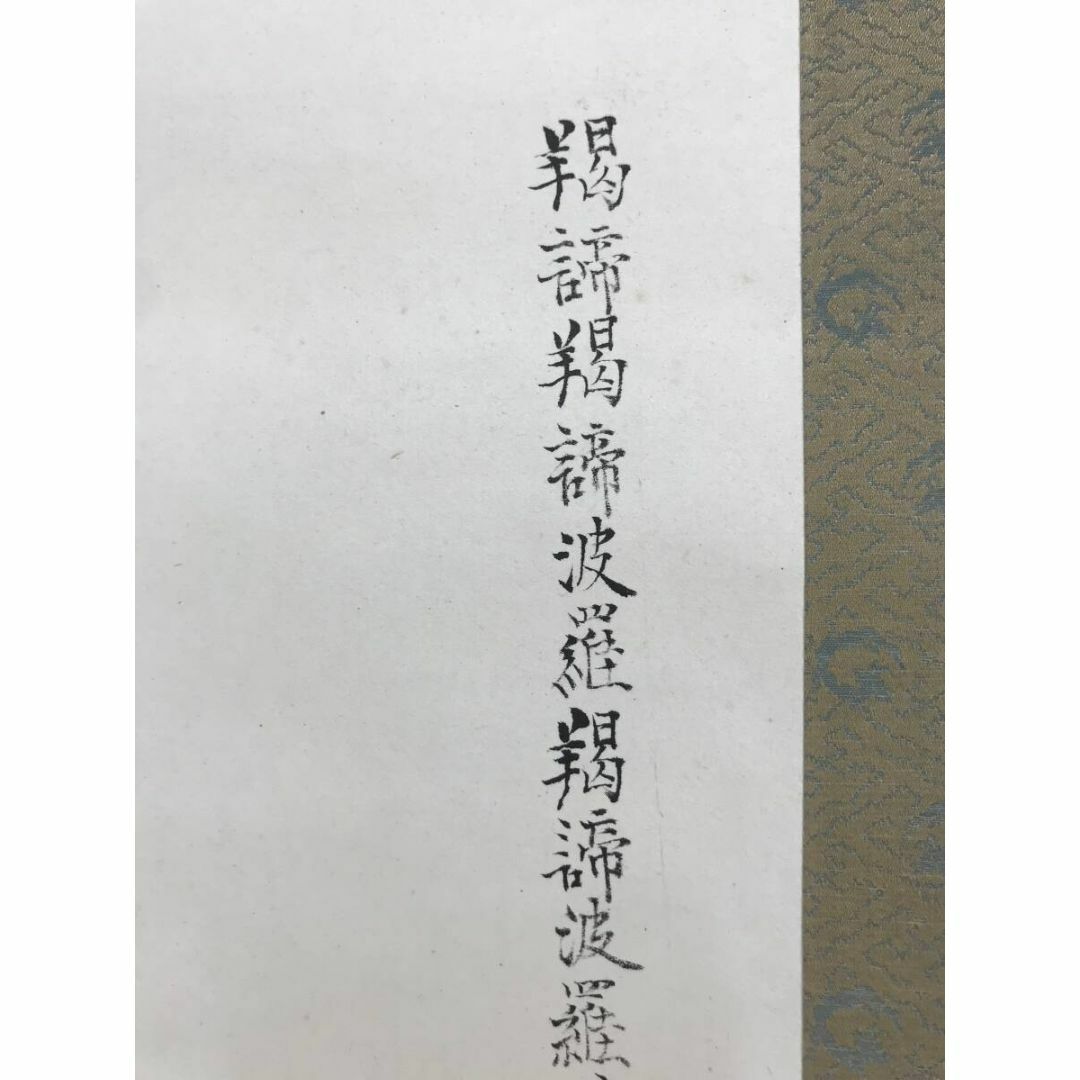 羯諦羯諦波羅羯諦波羅